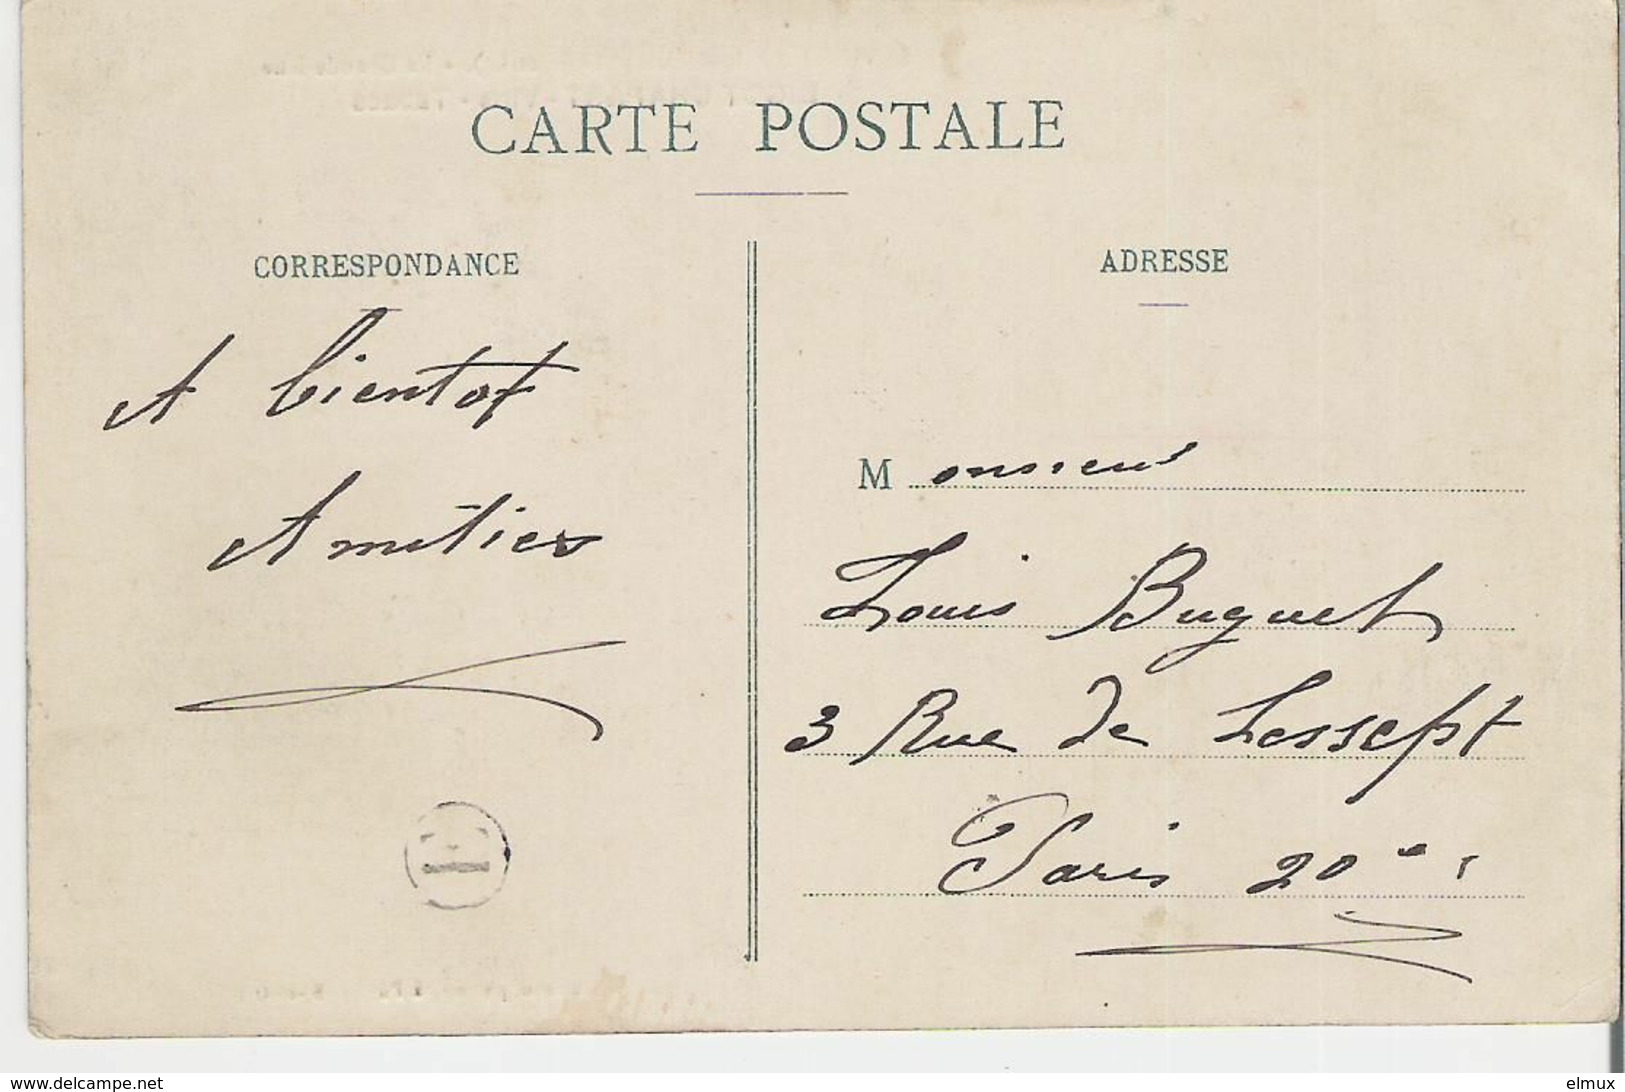 CARTE POSTALE
CORRESPONDANCE
A bientot
Amities
ADRESSE
Monsieur
Louis Buguet
3 Rue de Lessept
Paris 20e
www.delcampe.net
elmux